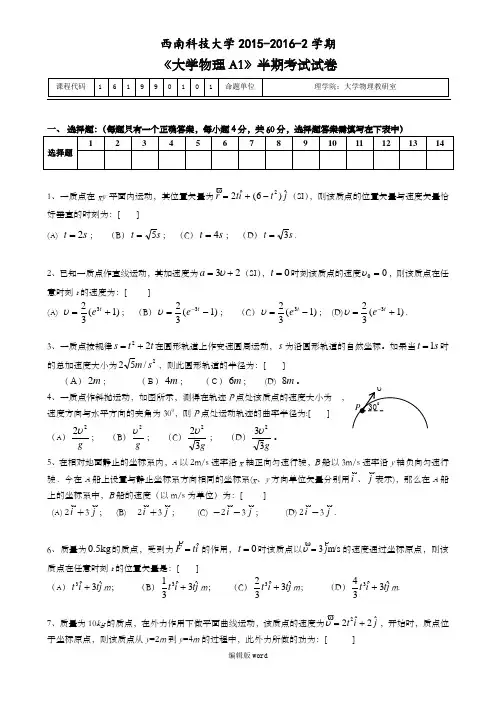 西南科技大学2015-2016-2学期
《大学物理A1》半期考试试卷
课程代码 1 6 1 9 9 0 1 0 1 命题单位 理学院：大学物理教研室
一、 选择题：（每题只有一个正确答案，每小题4分，共60分，选择题答案需填写在下表中）
选择题 1 2 3 4 5 6 7 8 9 10 11 12 13 14
1、一质点在xy平面内运动，其位置矢量为r=2ti+(6-t²)j（SI），则该质点的位置矢量与速度矢量恰
好垂直的时刻为：[ ]
(A) t=2s； （B）t=√5s； （C）t=4s； （D）t=√3s.
2、已知一质点作直线运动，其加速度为a=3υ+2（SI），t=0时刻该质点的速度υ₀=0，则该质点在任
意时刻t的速度为：[ ]
(A) υ=2/3(e³ᵗ+1)； （B）υ=2/3(e⁻³ᵗ-1)； （C）υ=2/3(e³ᵗ-1)； (D)υ=2/3(e⁻³ᵗ+1).
3、一质点按规律s=t²+2t在圆形轨道上作变速圆周运动，s为沿圆形轨道的自然坐标。如果当t=1s时
的总加速度大小为2√5m/s²，则此圆形轨道的半径为：[ ]
（A）2m； （B）4m； （C）6m； (D) 8m。
4、一质点作斜抛运动，如图所示，测得在轨迹P点处该质点的速度大小为 ，
速度方向与水平方向的夹角为30⁰，则P点处运动轨迹的曲率半径为：[ ]
（A）2υ²/g； （B）υ²/g； （C）2υ²/√3g； （D）√3υ²/3g。
P 30°
υ
5、在相对地面静止的坐标系内，A以2m/s速率沿x轴正向匀速行驶，B船以3m/s速率沿y轴负向匀速行
驶．今在A船上设置与静止坐标系方向相同的坐标系(x、y方向单位矢量分别用i、j表示)，那么在A船
上的坐标系中，B船的速度（以m/s为单位）为：[ ]
(A) 2i+3j； (B) -2i+3j； (C) -2i-3j； (D) 2i-3j．
6、质量为0.5kg的质点，受到力F=ti的作用，t=0时该质点以υ=3jm/s的速度通过坐标原点，则该
质点在任意时刻t的位置矢量是：[ ]
（A）t³i+3tj m； （B）1/3t³i+3tj m； （C）2/3t³i+3tj m； （D）4/3t³i+3tj m.
7、质量为10kg的质点，在外力作用下做平面曲线运动，该质点的速度为υ=2t²i+2j，开始时，质点位
于坐标原点，则该质点从y=2m到y=4m的过程中，此外力所做的功为：[ ]
编辑版word